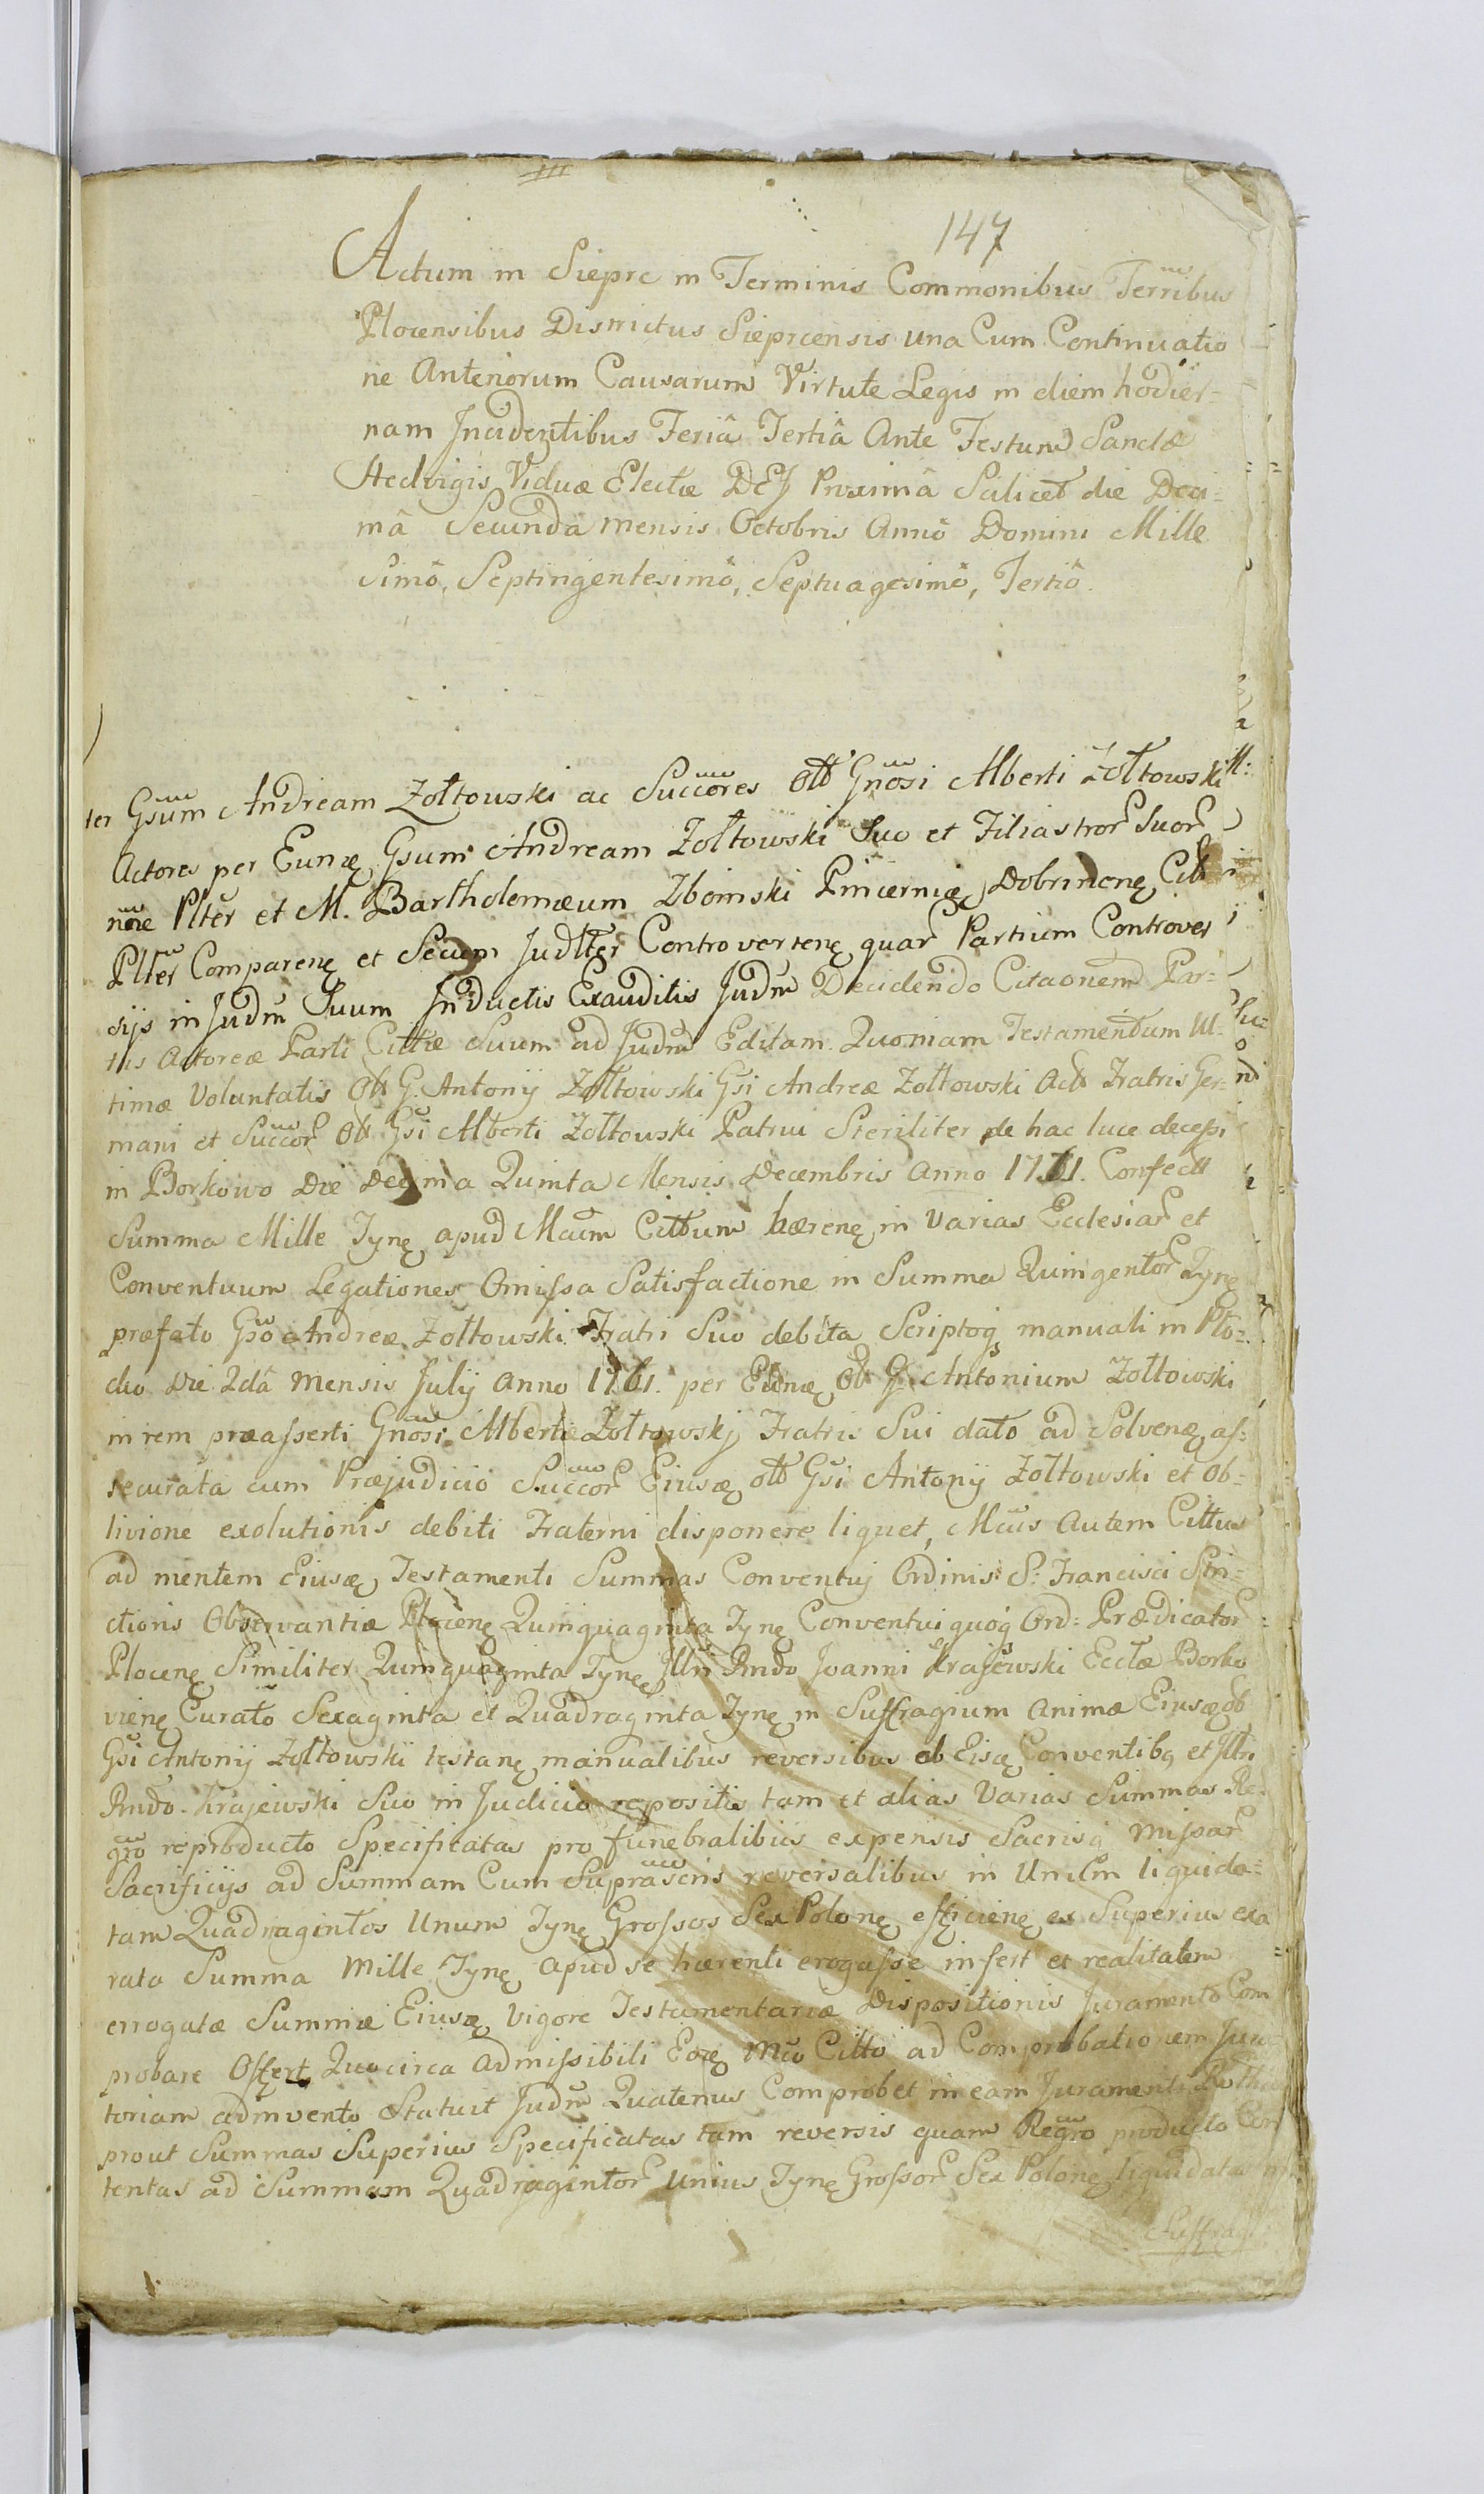 147
Actum in Sieprc in Terminis Commonibus Terribus
Plocensibus Districtus Sieprcensis una Cum Continuatio
ne Anteriorum Causarum Virtute Legis in diem hodier-
nam Incidentibus Feriâ Tertiâ Ante Festum Sanctæ
Hedvigis Viduæ Electæ DEJ Proximâ Scilicet die Deci-
mâ Secunda mensis Octobris Annô Domini Mille
simô, Septingentesimô, Septuagesimô, Tertiô.
ter Gsum Andream Zołtowski ac Succores Olb Gnosi Alberti Zołtowski
Actores per Eundę Gsum Andream Zołtowski Suo et Filiastror Suor
nore Plter et M. Bartholomæum Zboinski Pincernię Dobrinenę Citt
Plter Comparenę et Secum Judlter Controvertenę quar Partium Controver
sijs in Judm Suum Inductis Exauditis Judm Decidendo Citaonem Par-
tis Actoreæ Parti Cittæ Suum ad Judm Editam. Quoniam Testamentum Ul-
timæ Voluntatis Olb G. Antonij Zołtowski Gsi Andreæ Zołtowski Actt Fratris Ger-
mani et Succor Olb Gsi Alberti Zołtowski Patrui Steriliter de hac luce decessi
in Borkowo Die Decima Quinta Mensis Decembris Anno 1771. Confectt
Summa Mille Tynę apud Mcum Cittum hærenę in Varias Ecclesiar et
Conventuum Legationes Omissa Satisfactione in Summa Quingentor Tynę
præfato Gso Andreæ Zołtowski Fratri Suo debita Scriptoq manuali in Plo-
cko Die 2dâ Mensis Julij Anno 1761. per Eundę Olb G. Antonium Zołtowski
in rem præasserti Gnosi Alberti Zołtowskj Fratris Sui dato ad Solvenę as-
securata cum Præjudicio Succor Eiusdę olb Gsi Antonij Zołtowski et Ob-
livione exolutionis debiti Fraterni disponere liquet, Mcus Autem Cittus
ad mentem Eiusdę Testamenti Summas Conventuj Ordinis S. Francisci Stri-
ctioris Observantiæ Plocenę Quinquaginta Tynę Conventui quoq Ord: Prædicator
Plocenę Similiter Quinquaginta Tynę Illri Rndo Joanni Krajewski Ecclæ Borko
vienę Curato Sexaginta et Quadraginta Tynę in Suffragium Animæ Eiusdę olb
Gsi Antonij Zołtowskij testanę manualibus reversibus ab Eisdę Conventibq et Illri
Rndo Krajewski Suo in Judicio repositis tam et alias Varias Summas Re-
gro reproducto Specificatas pro funebralibus expensis Sacrisq Missar
Sacrificijs ad Summam Cum Suprascris reversalibus in Unum liquida-
tam Quadragintos Unum Tynę Grossos Sex Polonę efficienę ex Superius exa
rata Summa Mille Tynę apud se hærenti erogasse infert et realitatem
errogatæ Summæ Eiusdę Vigore Testamentariæ Dispositionis Juramento Com
probare Offert Quocirca admissibili Eodę Mco Citto ad Comprobationem Jura-
toriam adinvento Statuit Judm Quatenus Comprobet in eam Juramenti Rotham
prout Summas Superius Specificatas tam reversis quam Regro producto Con
tentas ad Summam Quadragintor Unius Tynę Grossor Sex Polonę liquidatam
Suffrag